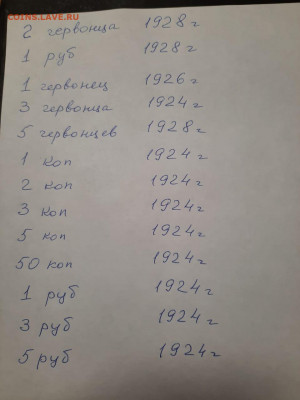 COINS.LAVE.RU
2 червонца 1928 г
1 руб 1928 г
1 червонец 1926 г
3 червонца 1924 г
5 червонцев 1928 г
1 коп 1924 г
2 коп 1924 г
3 коп 1924 г
5 коп 1924 г
50 коп 1924 г
1 руб 1924 г
3 руб 1924 г
5 руб 1924 г